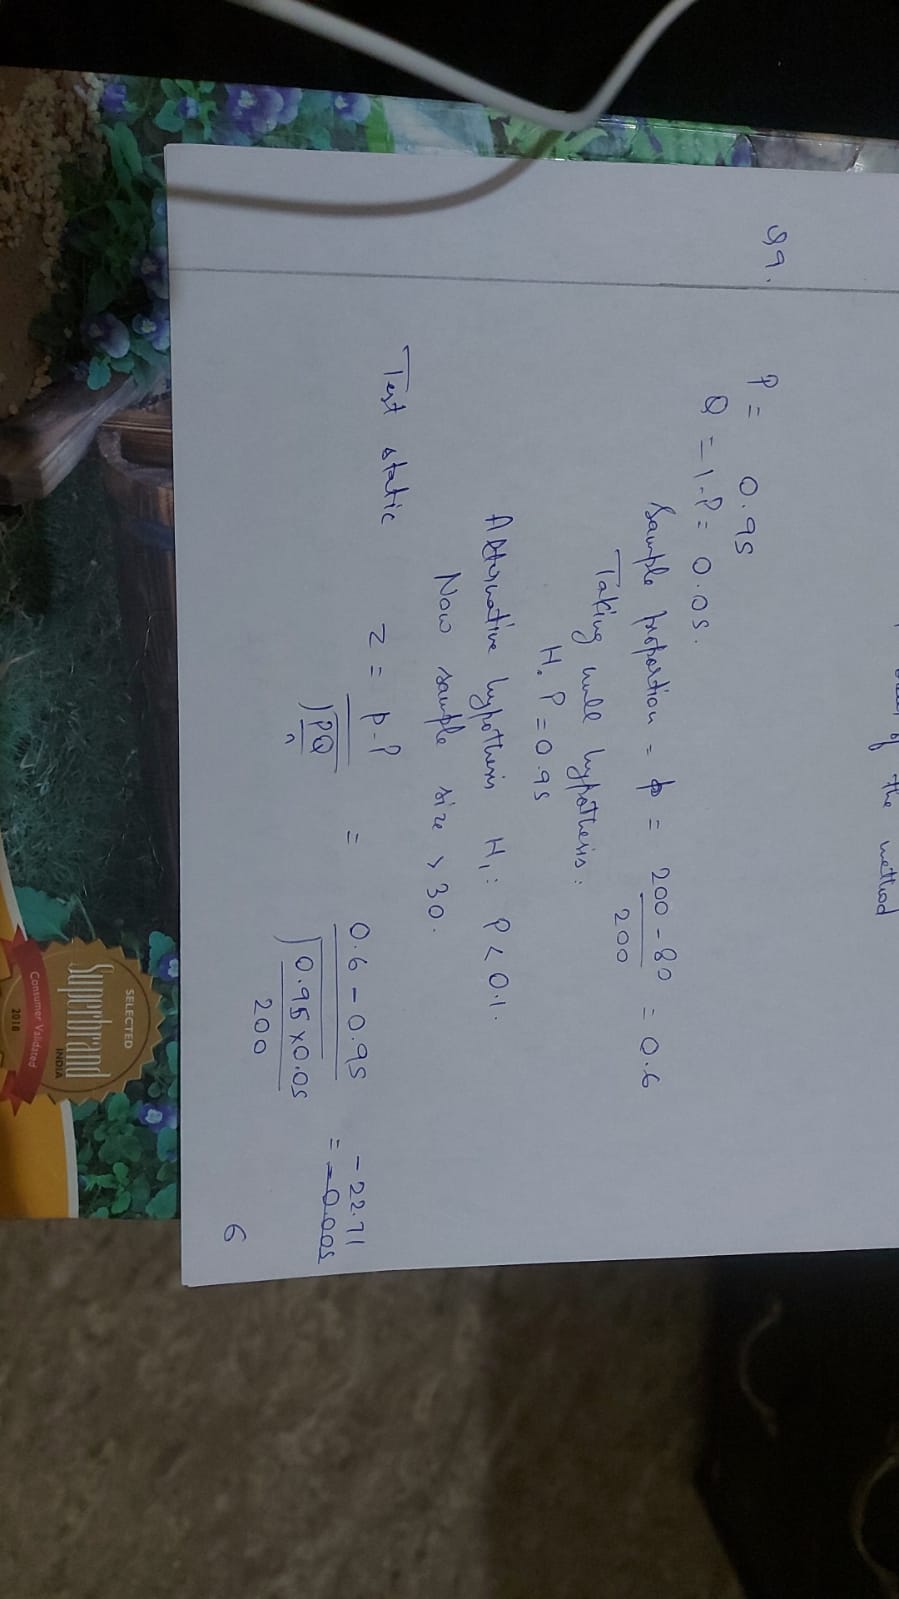 of the method
Q9.
P = 0.95
Q = 1-P = 0.05.
Sample proportion = p = 200 - 80 / 200 = 0.6
Taking null hypothesis:
H₀ P = 0.95
Alternative hypothesis H₁: P < 0.1.
Now sample size > 30.
Test static z = p-P / √PQ/n = 0.6 - 0.95 / √0.95 x 0.05 / 200 = -22.71
-0.005
6
SELECTED
Superbrand
INDIA
Consumer Validated
2018